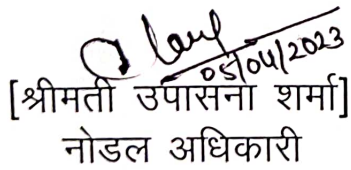 05/04/2023
[श्रीमती उपासना शर्मा]
नोडल अधिकारी